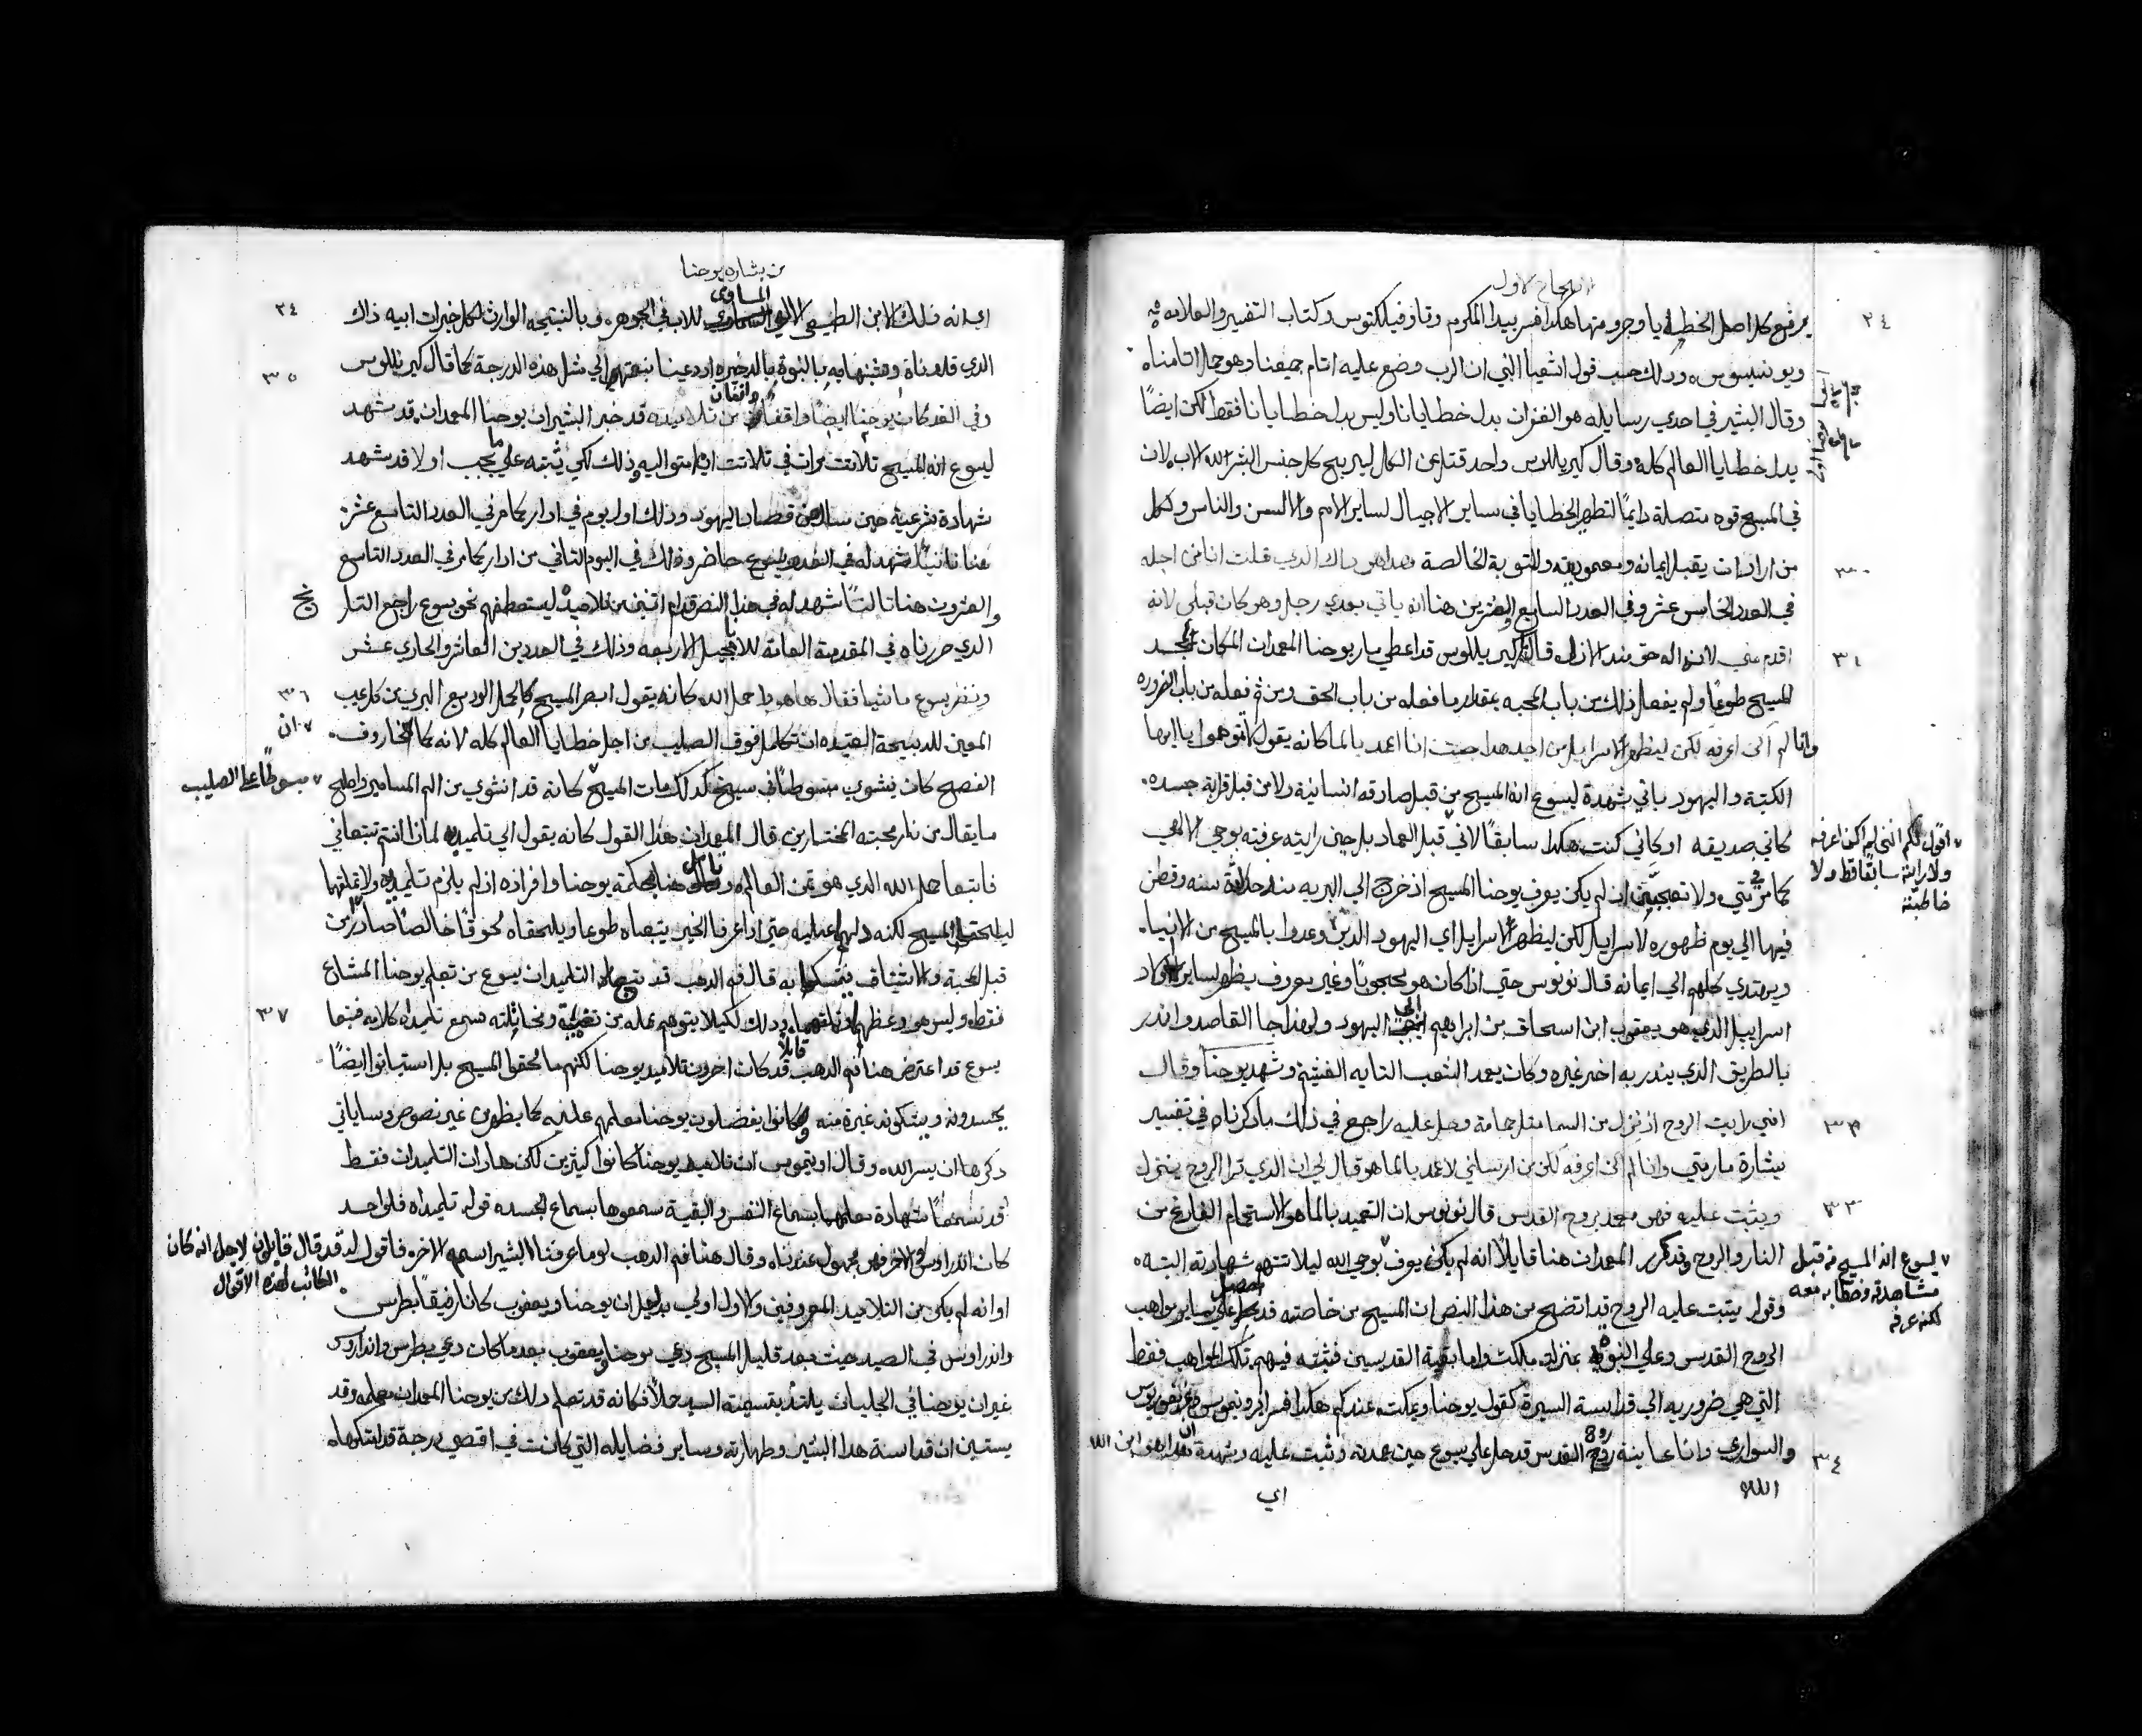 الاصحاح الاول
يرفع كل اصل الخطية يا وجرومنها هكذا فسر بيدا المكرم وتاوفيلكتوس وكتاب التفسير والعلامه
ويونيسيوس وذلك حسب قول اشعيا النبي ان الرب وضع عليه اتام جميعنا وهو حمل اتامناه
وقال البشير في احدي رسايله هو الغفران بدل خطايانا وليس بدل خطايانا فقط لكن ايضًا
بدل خطايا العالم كله وقال كيريللوس واحد قتل عن الكل ليربح كل جنس البشر لله الاب لان
في المسيح قوه متصلة دايمًا لتطهير الخطايا في ساير الاجيال لساير الامم والالسن والناس وكل
من اراد ان يقبل ايمانه ومعموديته والتوبة الخالصة هدا هو داك الدي قلت انا من اجله
في العدد الخامس عشر وفي العدد السابع والعشرين هنا انه ياتي بعدي رجل وهو كان قبلي لانه
اقدم مني لانه اله حق مند الازل قال كيريللوس قد اعطي مار يوحنا المعمدان المكان لمجد
المسيح طوعًا ولم يفعل ذلك من باب المحبه بمقدار ما فعله من باب الحق ومن ثم فعله من باب الضروره
وانا لم اكن اعرفه لكن ليظهر لاسراييل من اجل هدا جيت انا اعمد بالما كانه يقول لا تتوهموا يا ايها
الكتبة واليهود باني شهدة ليسوع انه المسيح من قبل صادقه انسانية ولا من قبل قرابة جسده
كاني صديقه او كاني كنت هكدا سابقًا لاني قبل العماد بل حين رايته عرفته بوحي الالهي
اقول لكم انني لم اكن اعرفه
ولا رايته سابقًا قط ولا
خاطبته
كما مر في متي ولا تعجبين ان لم يكن يعرف يوحنا المسيح اذ خرج الي البريه مند حداثة سنه وقطن
فيها الي يوم ظهوره لاسراييل لكن ليظهر لاسراييل اي اليهود الدين وعدوا بالمسيح من الانبيا
ويهتدي كلهم الي ايمانه قال نونوس حتي اذا كان هو محجوبًا وغير معروف يظهر لساير اولاد
اسراييل الدي هو يعقوب ابن اسحاق بن ابراهيم الي اليهود ولهذا جا القاصد واندر
بالطريق الدي يندر به اخر غيره وكان يعمد الشعب التايه الغشيم وشهد يوحنا وقال
انني رايت الروح اذ نزل من السما متل حمامة وحل عليه راجع في ذلك ما دكرناه في تفسير
بشارة مار متي وانا لم اكن اعرفه لكن من ارسلني لاعمد بالما هو قال لي ان الدي ترا الروح ينزل
ويثبت عليه فهو يعمد بروح القدس قال نونوس ان التعميد بالما هو الاستحمام الفارغ من
النار والروح وقد كرر المعمدان هنا قايلًا انه لم يكن يعرف بوحي الله ليلا تتهم شهادته البته
يسوع انه المسيح من قبل
مشاهدته وخطابه معه
لكنه عرفه
وقوله يتبت عليه الروح قد اتضح من هذا النص ان المسيح من خاصته قد حصل علي ساير مواهب
الروح القدس وعلي النبوه بمنزلة ملكة واما بقية القديسين فيثبته فيهم تلك المواهب فقط
التي هي ضروريه الي قداسة السيرة كقول يوحنا ويمكت عندكم هكدا فسر ايرونيموس وغريغوريوس
والسواري وانا عاينة روح القدس قد حل علي يسوع حين عمدته وثبت عليه وشهدة ان هدا هو ابن الله
الله
اي
من بشاره يوحنا
اي انه ذلك الابن الطبيعي الالهي المساوي للاب في الجوهر وبالنتيجه الوارث لكل خيرات ابيه ذاك
الدي قلدناه وشبهنا به بالنبوة بالدخيره اد دعينا بنعمته الي مثل هذه الدرجة كما قال كيريللوس
وفي الغد كان يوحنا ايضًا واقفًا واتنان من تلاميده قد خبر البشير ان يوحنا المعمدان قد شهد
ليسوع انه المسيح تلاتت مرات في تلاتت ايام متواليه وذلك لكي يثبته علي ما يجب اولا قد شهد
شهادة شرعية حين سالوه قضاة اليهود وذلك اول يوم في ادار كما مر في العدد التاسع عشر
هنا تانيًا شهد له في الغد ويسوع حاضر وذلك في اليوم التاني من ادار كما مر في العدد التاسع
والعشرون هنا تالتًا شهد له في هذا النص قدام اتنين من تلاميده ليستعطفهم نحو يسوع راجع التار
يخ
الدي حررناه في المقدمة العامة للاناجيل الاربعه وذلك في العددين العاشر والحادي عشر
ونظر يسوع ماشيًا فقال ها هودا حمل الله كانه يقول ابصر المسيح كالحمل الوديع البري من كل عيب
المعين للدبيحة العتيده ان تكمل فوق الصليب من اجل خطايا العالم كله لانه كما ان الخاروف
الفصح كان يشوي متسوطًا في سيخ كدلك مات المسيح مبسوطًا علي الصليب كانه قد انشوي من الم المسامير واصلح
ما يقال من نار محبته المختارين قال المعمدان هذا القول كانه يقول الي تلميديه لمادا انتم تتبعاني
فاتبعا حمل الله الدي هو تمن العالم وتامل هنا بحكمة يوحنا وافرازه اد لم يلزم تلميديه ولا تملقهما
ليلحقا المسيح لكنه دلهما عليه حتي اداعرفا الخير يتبعاه طوعا ويلحقاه لحوقًا خالصًا صادرًا من
قبل المحبة والاشتياق ويتمسكوا به قال فم الدهب قد تبعا التلميدان يسوع من تعلم يوحنا المشاع
فقط وليس هو وعظهما او تملقهما وذلك لكيلا يتوهم عمله من تغيبة ومحايلته سمع تلميداه كلامه فتبعا
يسوع قد اعترض هنا فم الدهب قايلًا قد كان اخرون تلاميد يوحنا لكنهم ما لحقوا المسيح بل استبانوا ايضًا
يحسدونه ويشتكون غيرة منه وكانوا يفضلون يوحنا معلمهم عليه كما يظهر من غير نصوص وسياتي
دكرها ان يسر الله وقال اوتيموس ان تلاميد يوحنا كانوا كثيرين لكن هادان التلميدان فقط
قد سمعا شهادة معلمهما بسماع النفس والبقية سمعوها بسماع الجسد قوله تلميداه فلواحد
كان اندراوس والاخر فهو مجهول عندنا وقال هنا فم الدهب لو ما عرفنا البشير اسمه الاخر فاقول لك قد قال قايلون لاجل انه كان
الكاتب لهده الاقوال
او انه لم يكن من التلاميد المعروفين والاول اولي بدليل ان يوحنا ويعقوب كانا رفيقًا بطرس
واندراوس في الصيد حيث بعد قليل المسيح دعي يوحنا ويعقوب بعد ما كان دعي بطرس واندراوس
غير ان يوحنا في الجليان يلتد بتسمية السيد حملًا فكانه قد تعلم دلك من يوحنا المعمدان معلمه وقد
يستبين ان قداسة هدا البشير وطهارته وساير فضايله التي كانت في اقصي درجة قد امتلكها